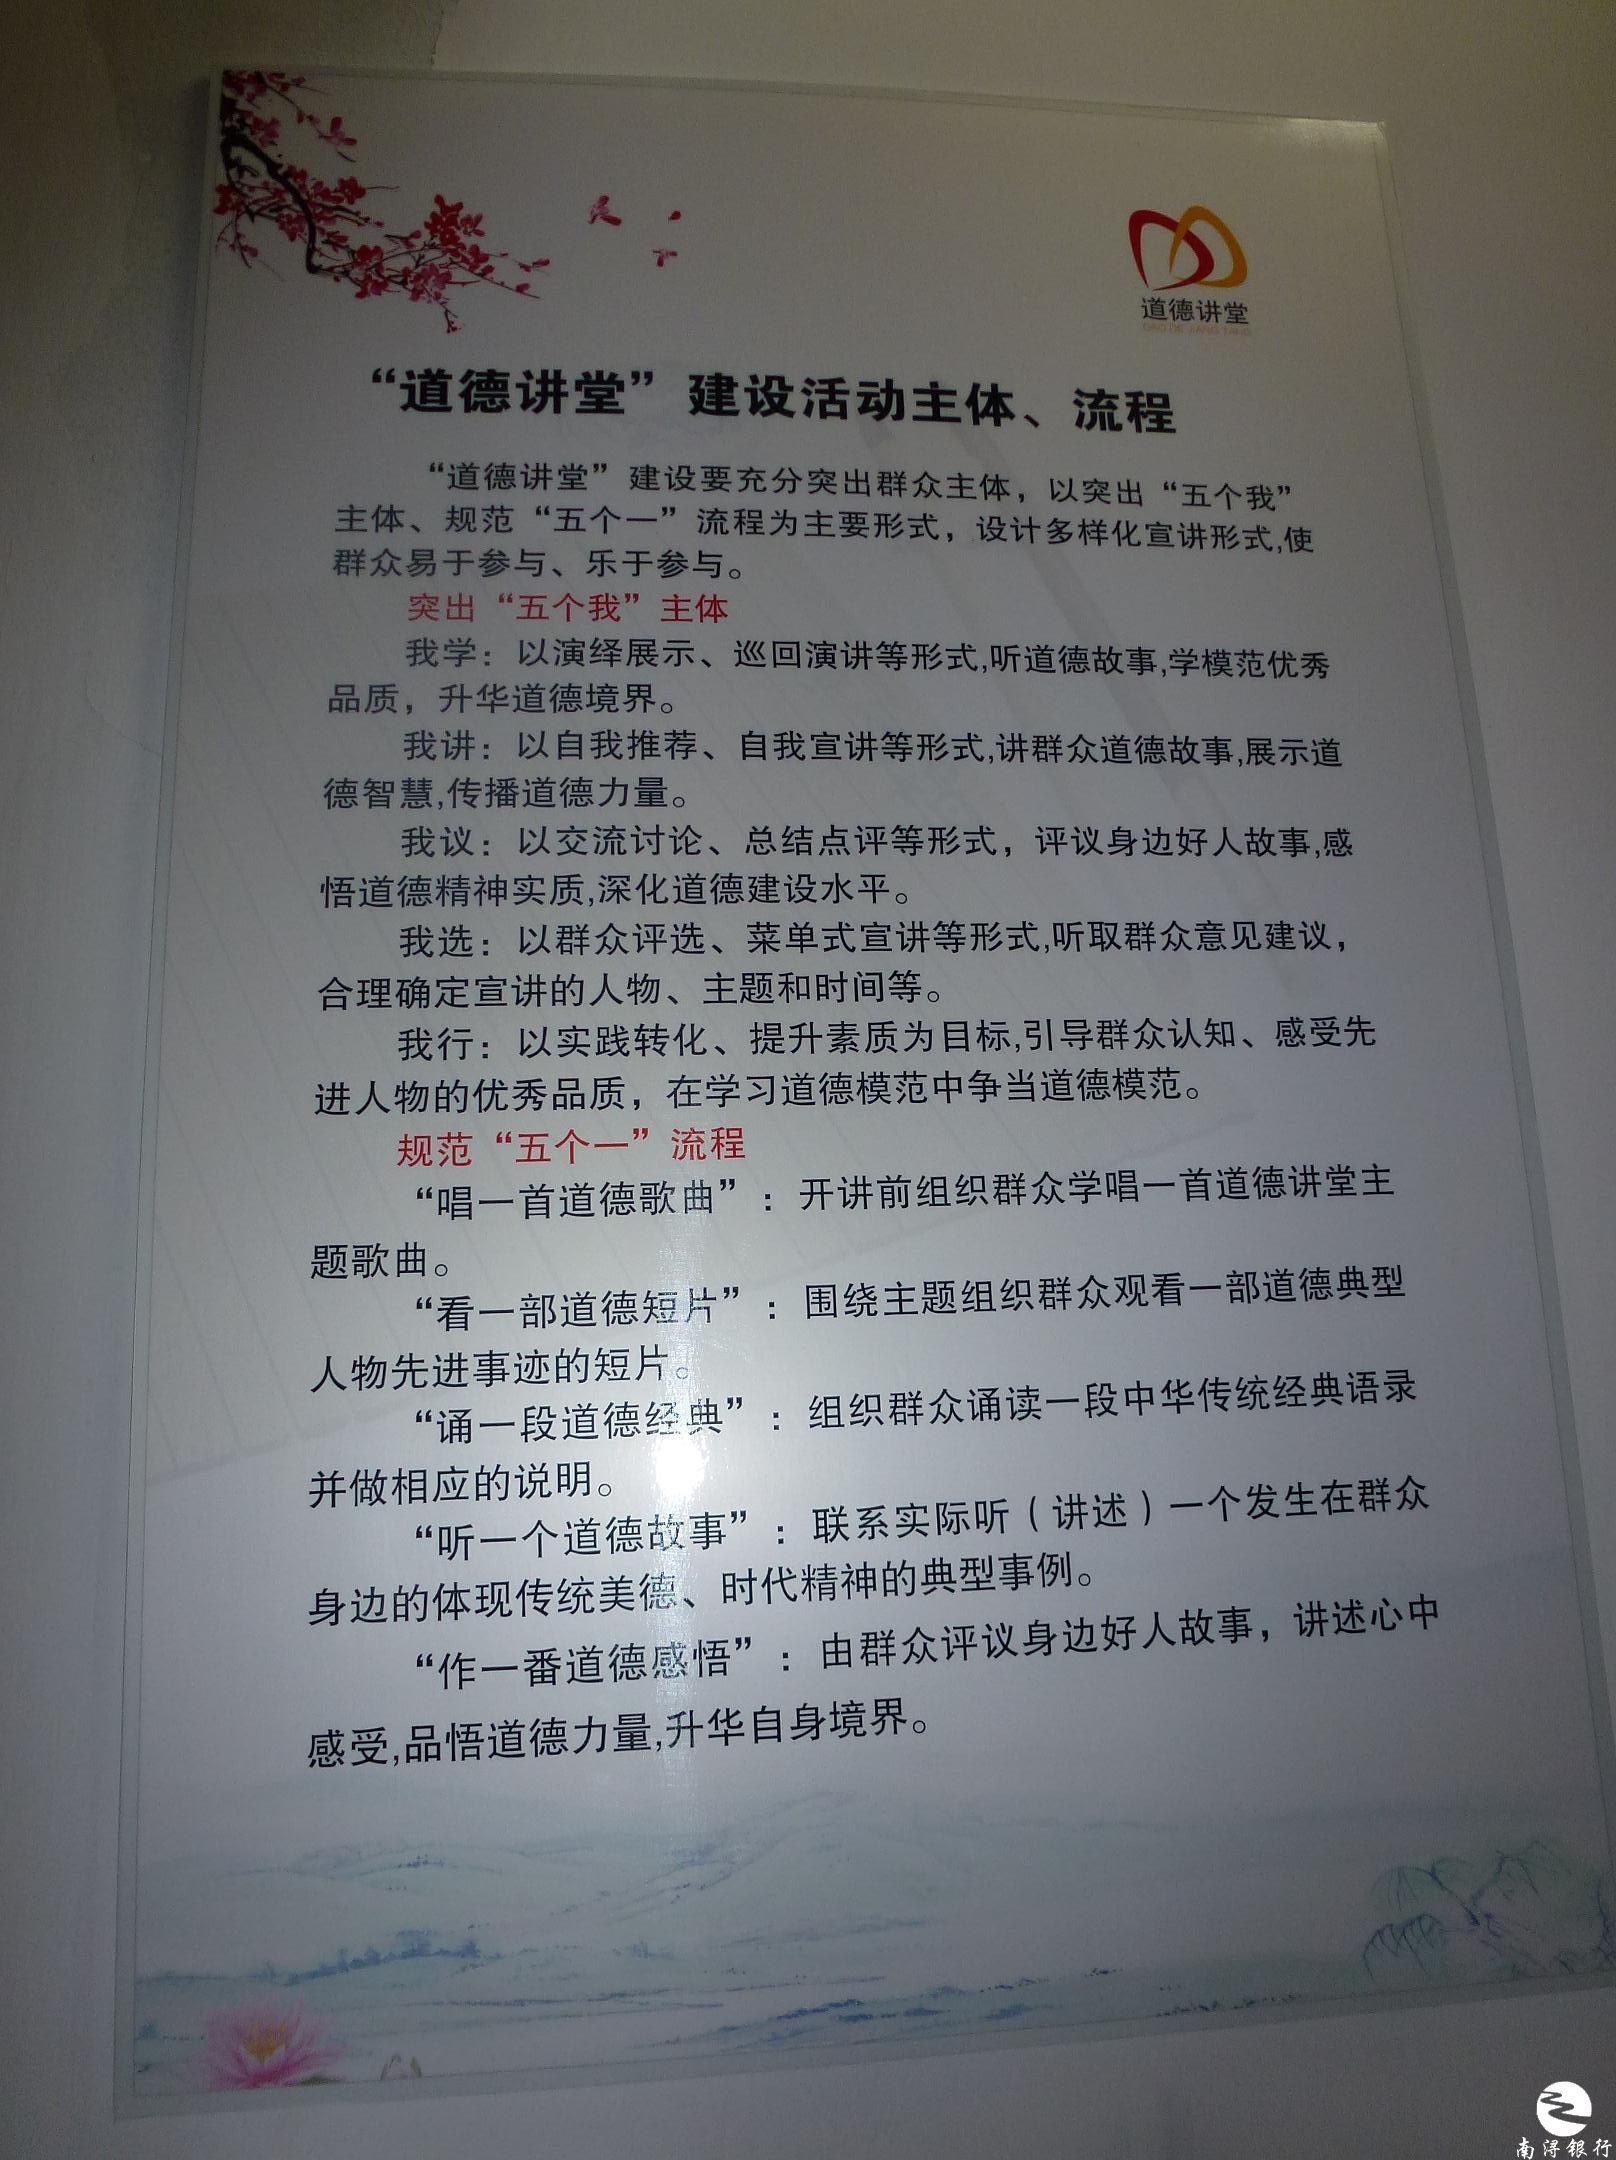 道德讲堂
DAO DE JIANG TANG
“道德讲堂”建设活动主体、流程
“道德讲堂”建设要充分突出群众主体，以突出“五个我”
主体、规范“五个一”流程为主要形式，设计多样化宣讲形式,使
群众易于参与、乐于参与。
突出“五个我”主体
我学：以演绎展示、巡回演讲等形式,听道德故事,学模范优秀
品质，升华道德境界。
我讲：以自我推荐、自我宣讲等形式,讲群众道德故事,展示道
德智慧,传播道德力量。
我议：以交流讨论、总结点评等形式，评议身边好人故事,感
悟道德精神实质,深化道德建设水平。
我选：以群众评选、菜单式宣讲等形式,听取群众意见建议，
合理确定宣讲的人物、主题和时间等。
我行：以实践转化、提升素质为目标,引导群众认知、感受先
进人物的优秀品质，在学习道德模范中争当道德模范。
规范“五个一”流程
“唱一首道德歌曲”：开讲前组织群众学唱一首道德讲堂主
题歌曲。
“看一部道德短片”：围绕主题组织群众观看一部道德典型
人物先进事迹的短片。
“诵一段道德经典”：组织群众诵读一段中华传统经典语录
并做相应的说明。
“听一个道德故事”：联系实际听（讲述）一个发生在群众
身边的体现传统美德、时代精神的典型事例。
“作一番道德感悟”：由群众评议身边好人故事，讲述心中
感受,品悟道德力量,升华自身境界。
南浔银行